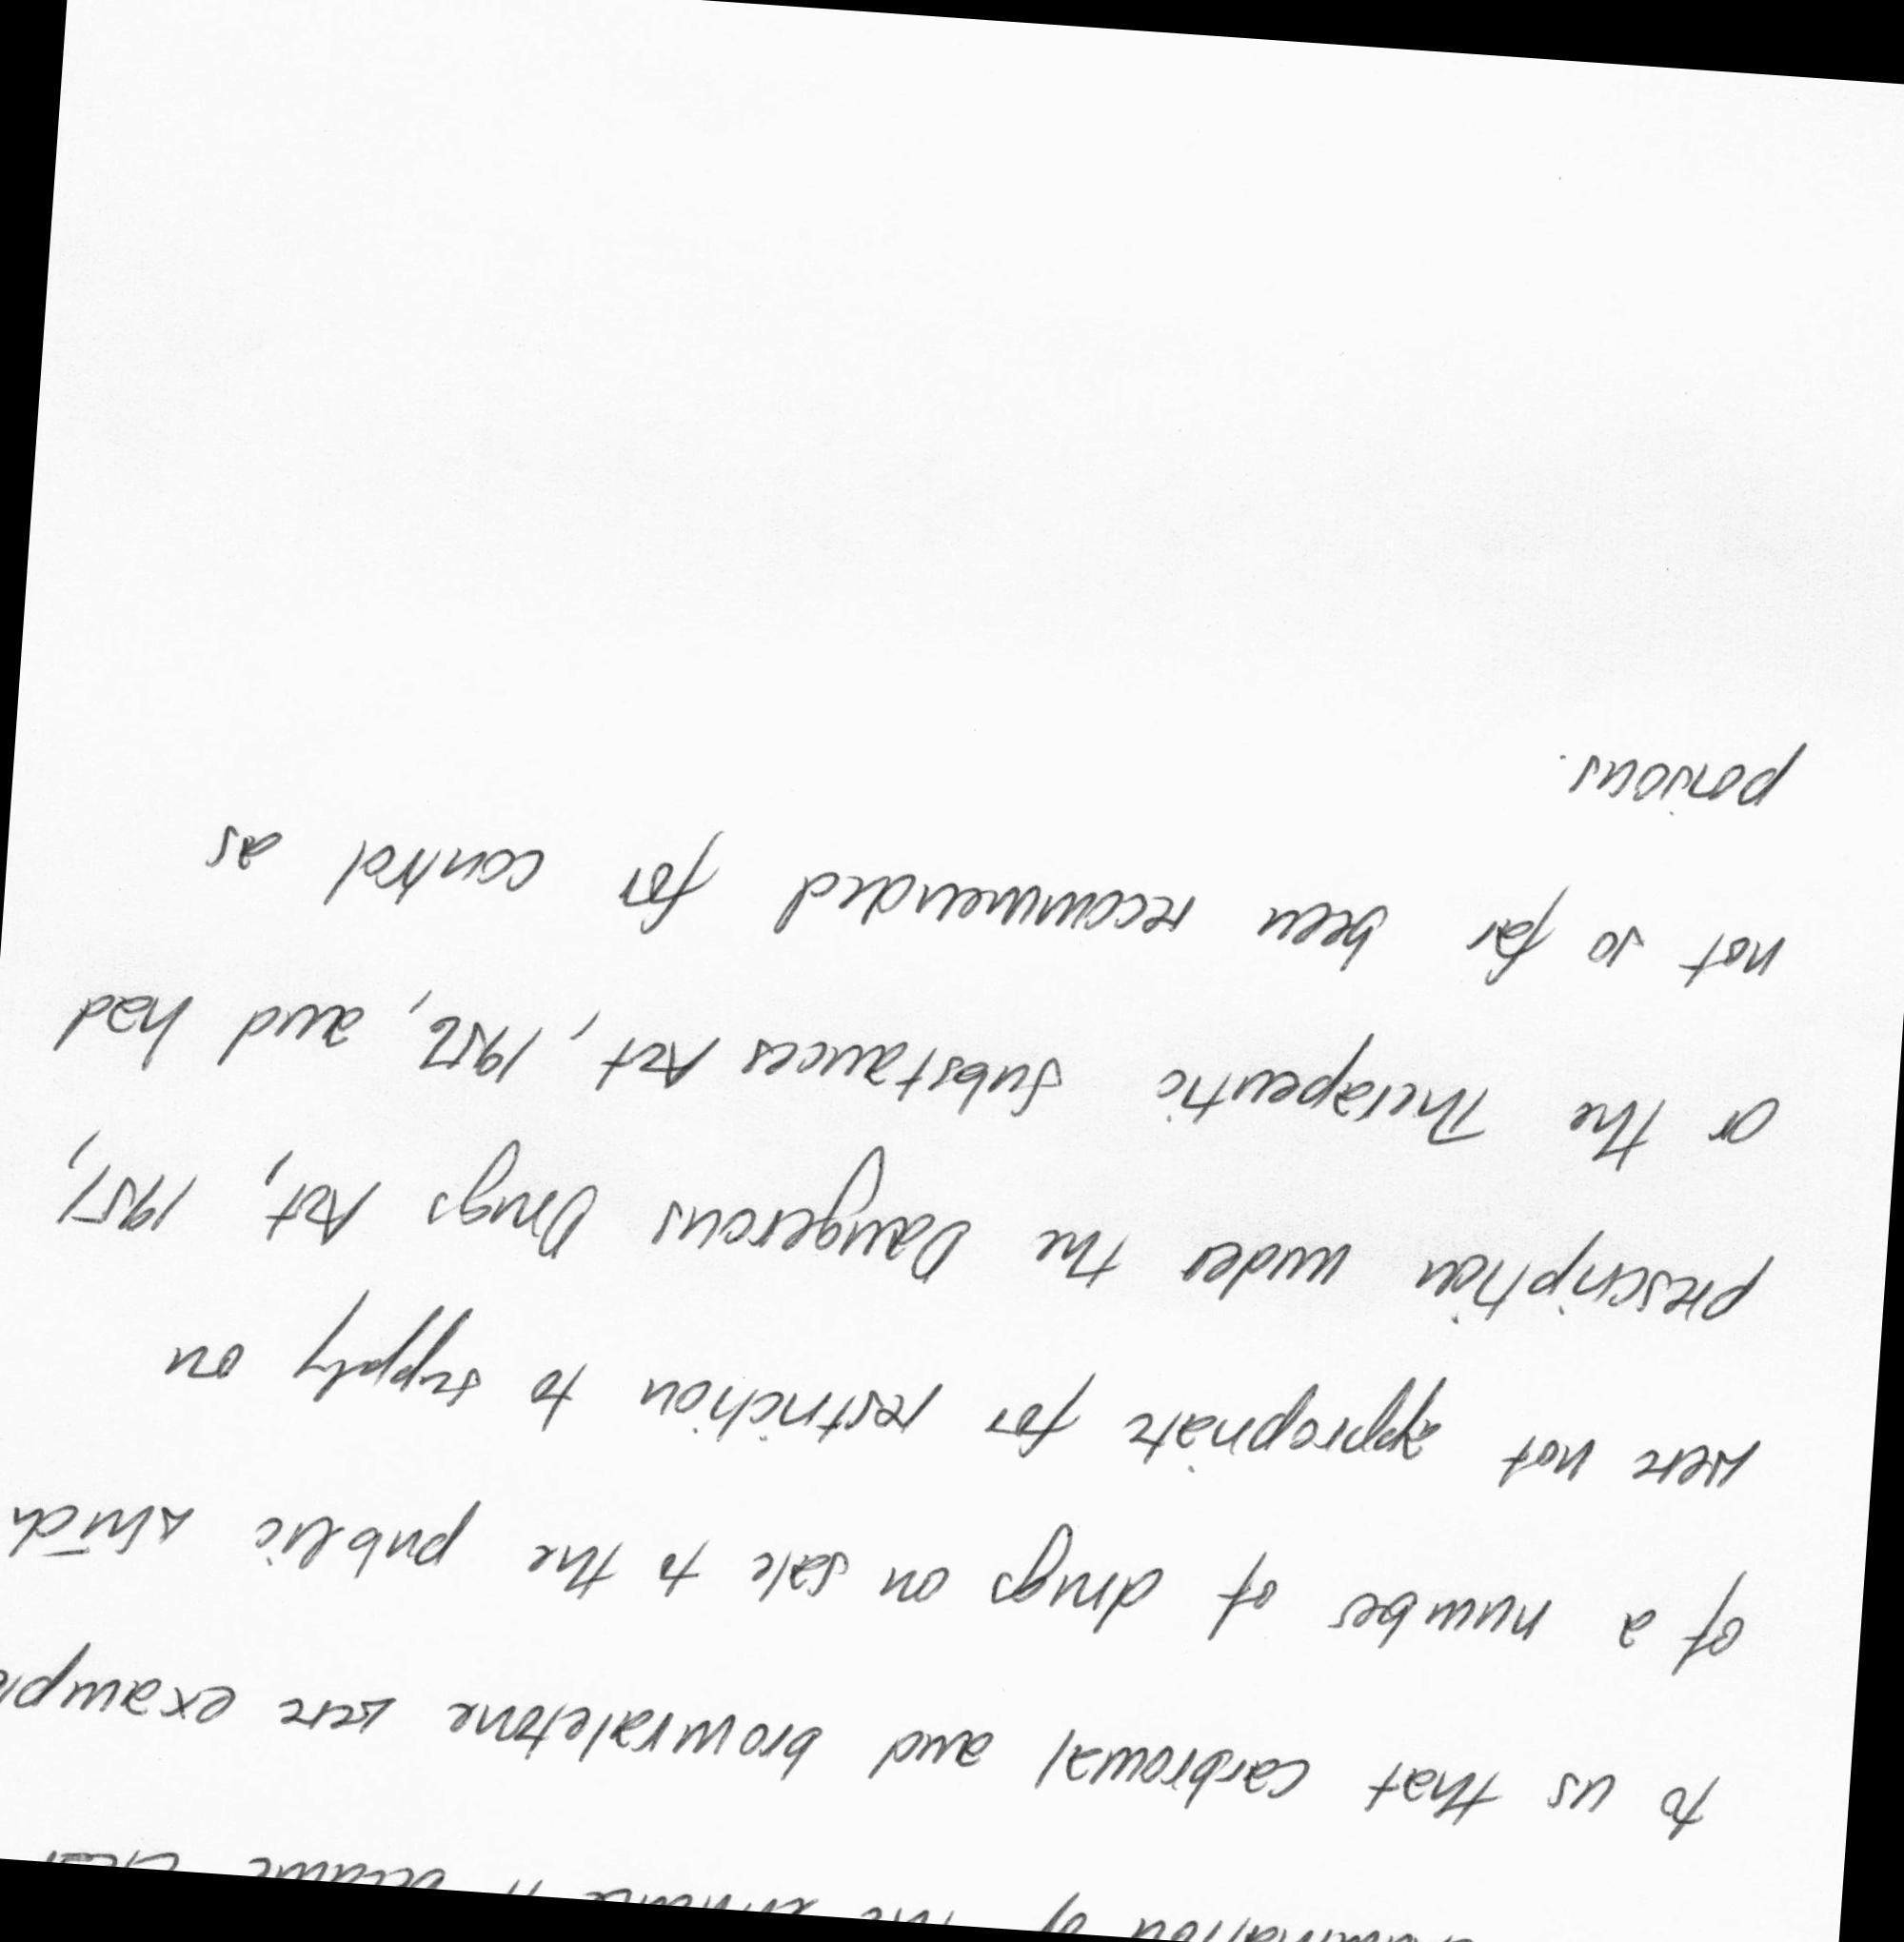 examination of the evidence it became clear
to us that carbromal and bromvaletone were example
of a number of drugs on sale to the public which
were not appropriate for restriction to supply on
prescription under the Dangerous Drugs Act, 1951,
or the Therapeutic Substances Act, 1956, and had
not so far been recommended for control as
poisons.